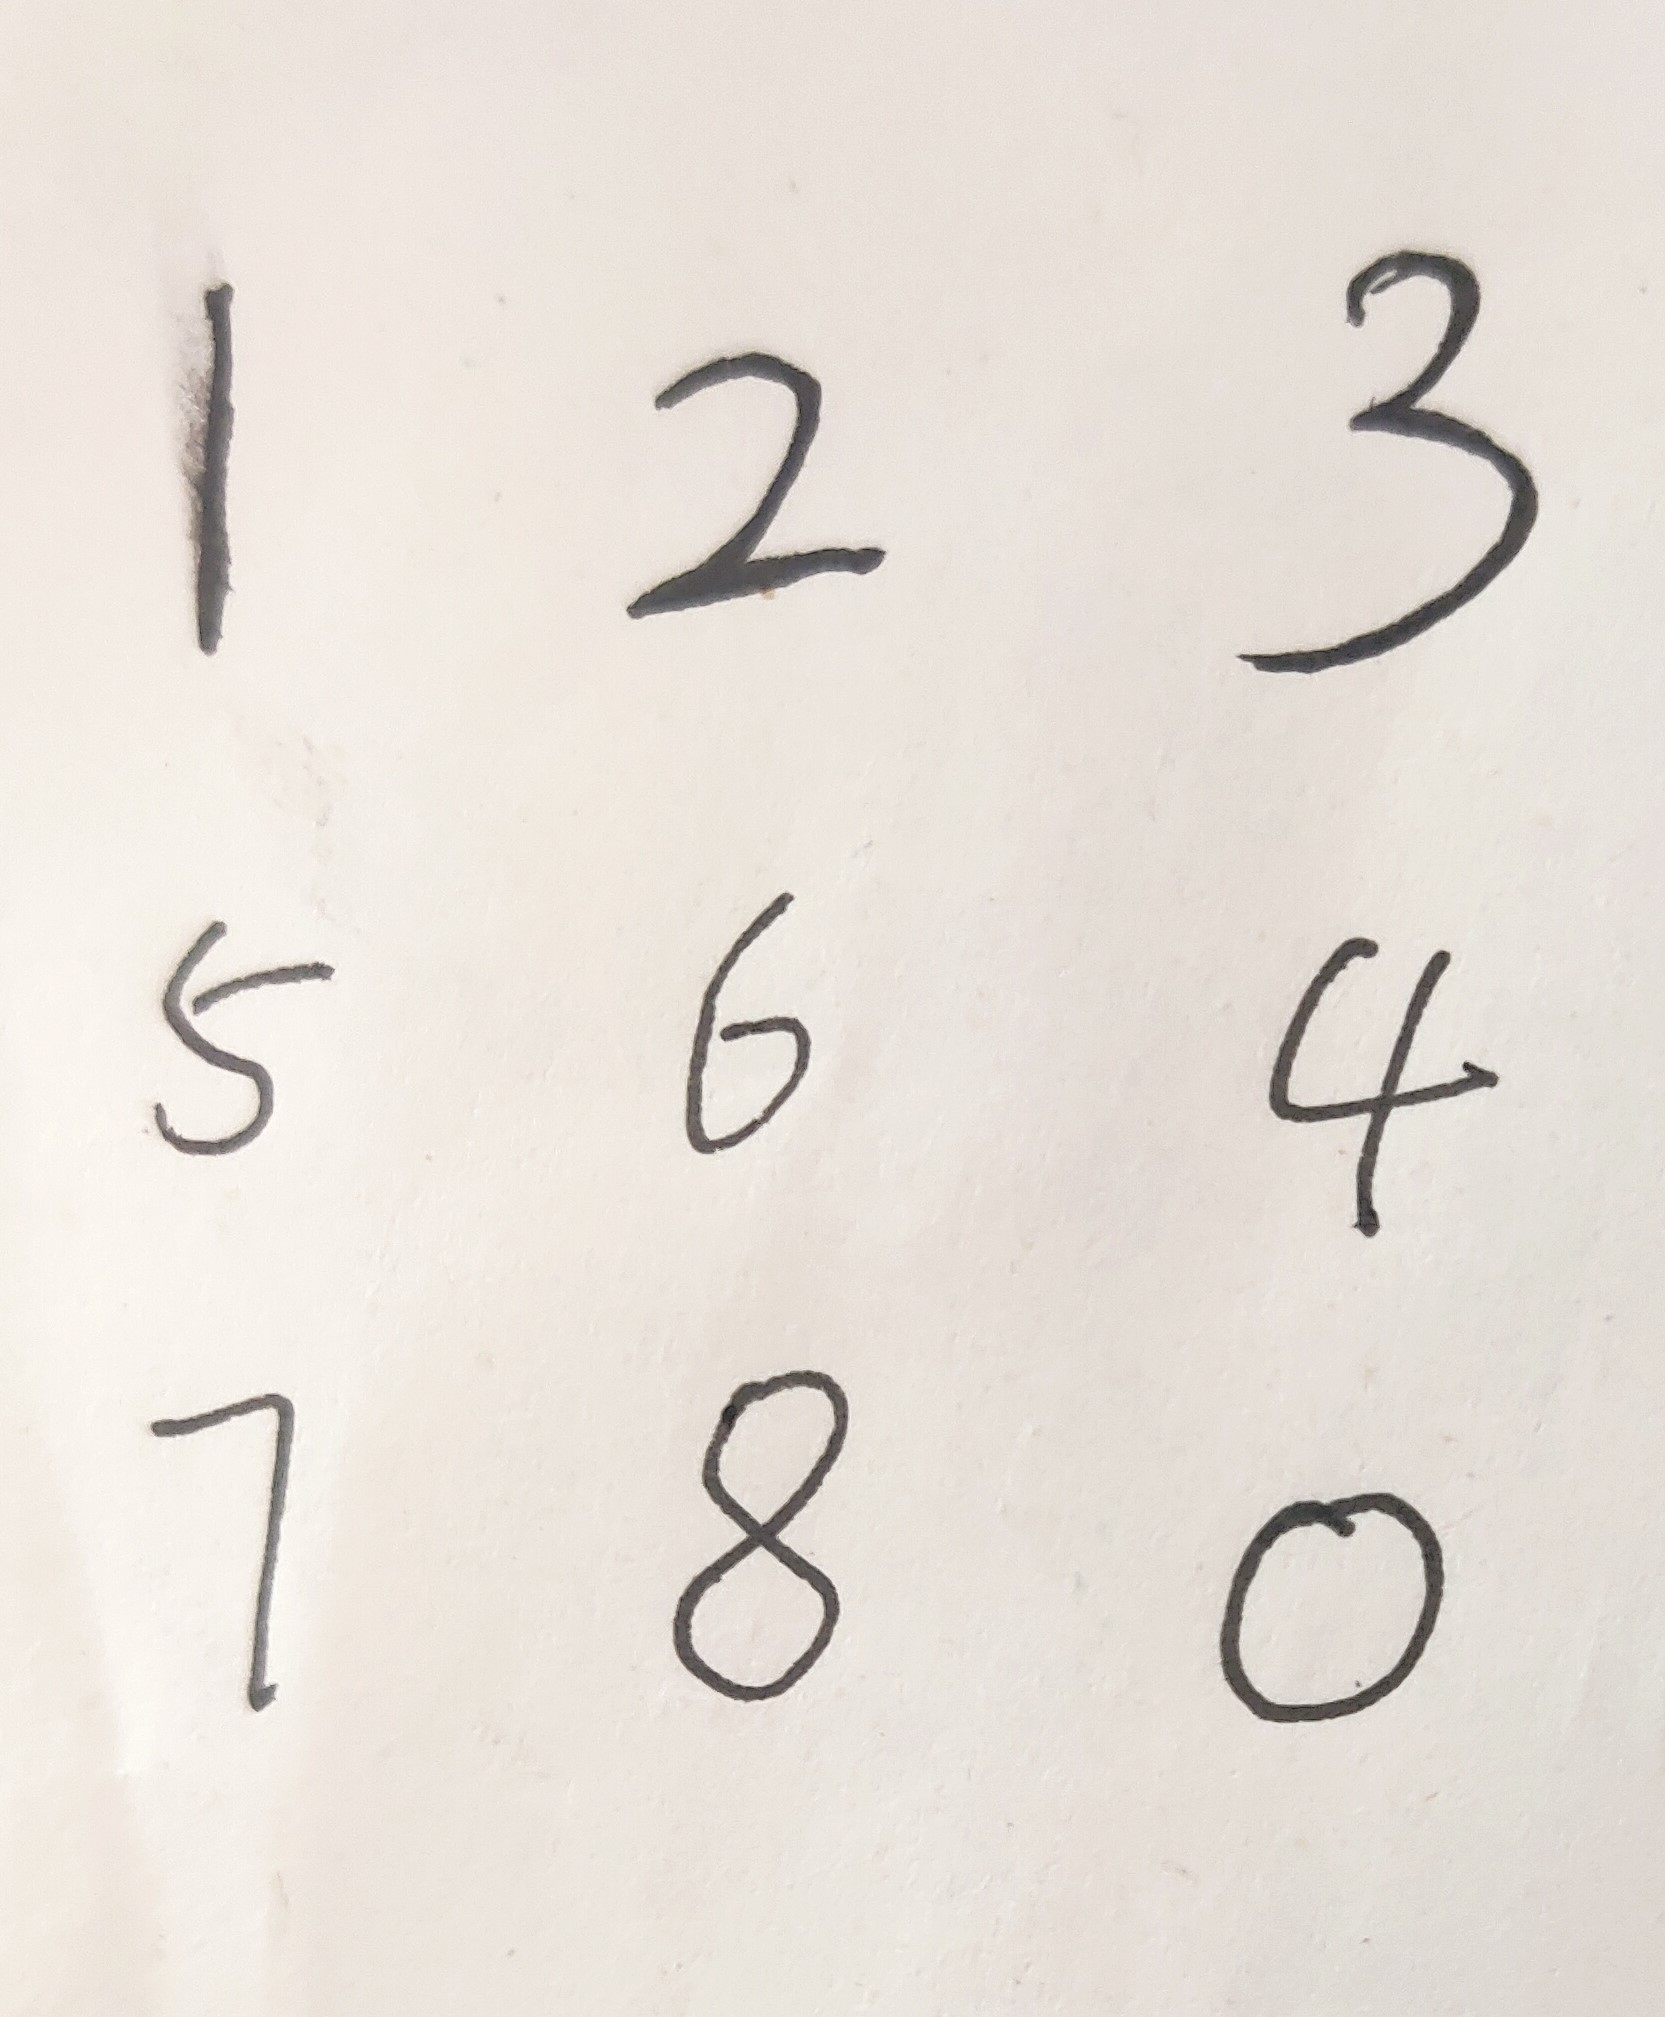 1 2 3
5 6 4
7 8 0